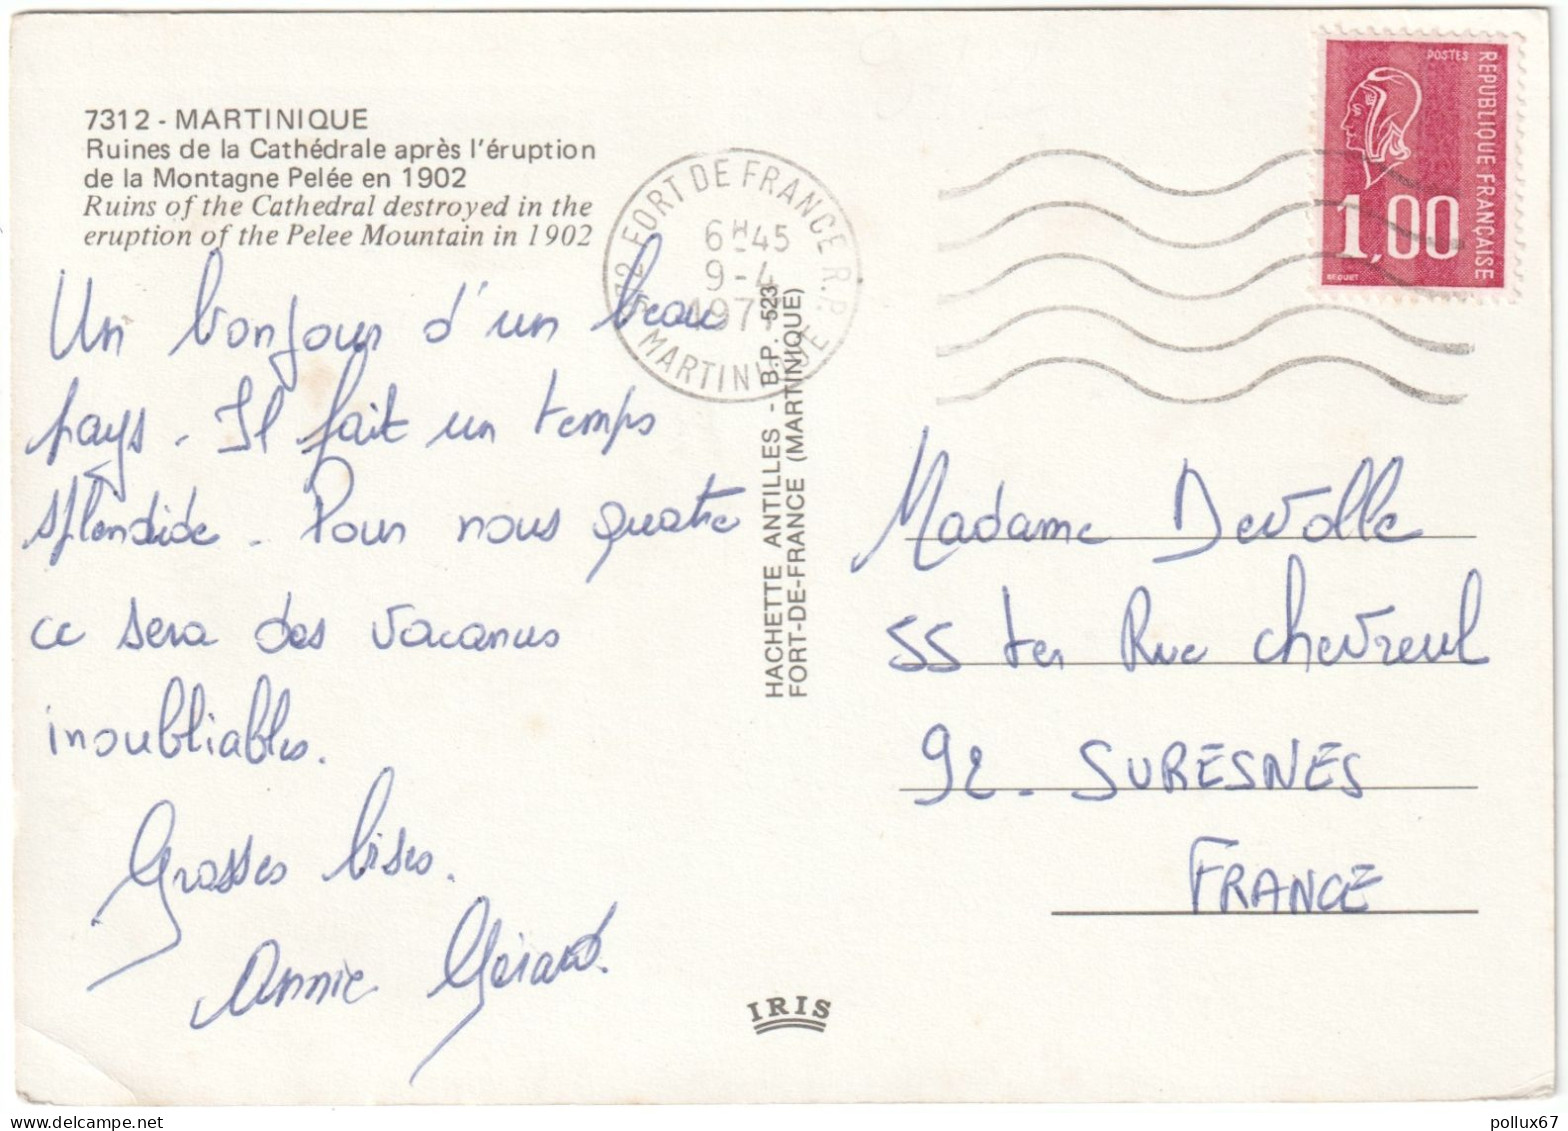 7312 - MARTINIQUE
Ruines de la Cathédrale après l'éruption
de la Montagne Pelée en 1902
Ruins of the Cathedral destroyed in the
eruption of the Pelee Mountain in 1902
Un bonjour d'un beau
pays - Il fait un temps
splendide - Pour nous quatre
ce sera des vacances
inoubliables.
Grosses bises.
Annie Gérard.
972 FORT DE FRANCE R.P.
6H45
9-4
MARTINIQUE
HACHETTE ANTILLES - B.P. 523
FORT-DE-FRANCE (MARTINIQUE)
POSTES
RÉPUBLIQUE FRANÇAISE
1,00
BEQUET
Madame Devolle
55 ter Rue Chevreul
92 - SURESNES
FRANCE
IRIS
pollux67